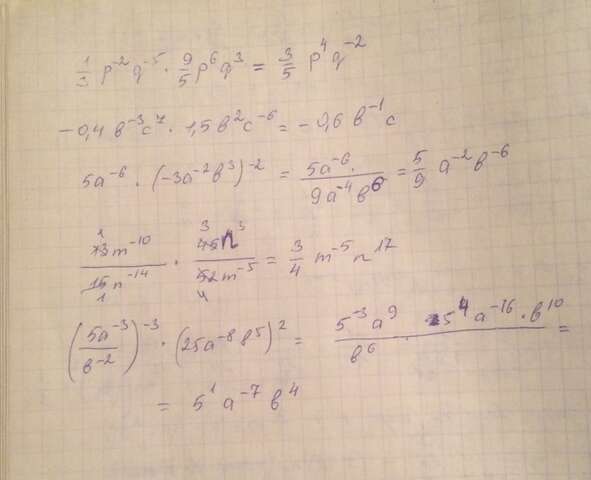 1/3 p^-2 q^-5 · 9/5 p^6 q^3 = 3/5 p^4 q^-2
-0,4 в^-3 с^7 · 1,5 в^2 с^-6 = -0,6 в^-1 с
5a^-6 · (-3a^-2 в^3)^-2 = 5a^-6 · / 9a^-4 в^6 = 5/9 a^-2 в^-6
1 13m^-10 / 15 1 n^-14 · 3 45 n^3 / 52 4 m^-5 = 3/4 m^-5 n^17
(5a^-3 / в^-2)^-3 · (25a^-8 в^5)^2 = 5^-3 a^9 5^4 a^-16 · в^10 / в^6 =
= 5^1 a^-7 в^4